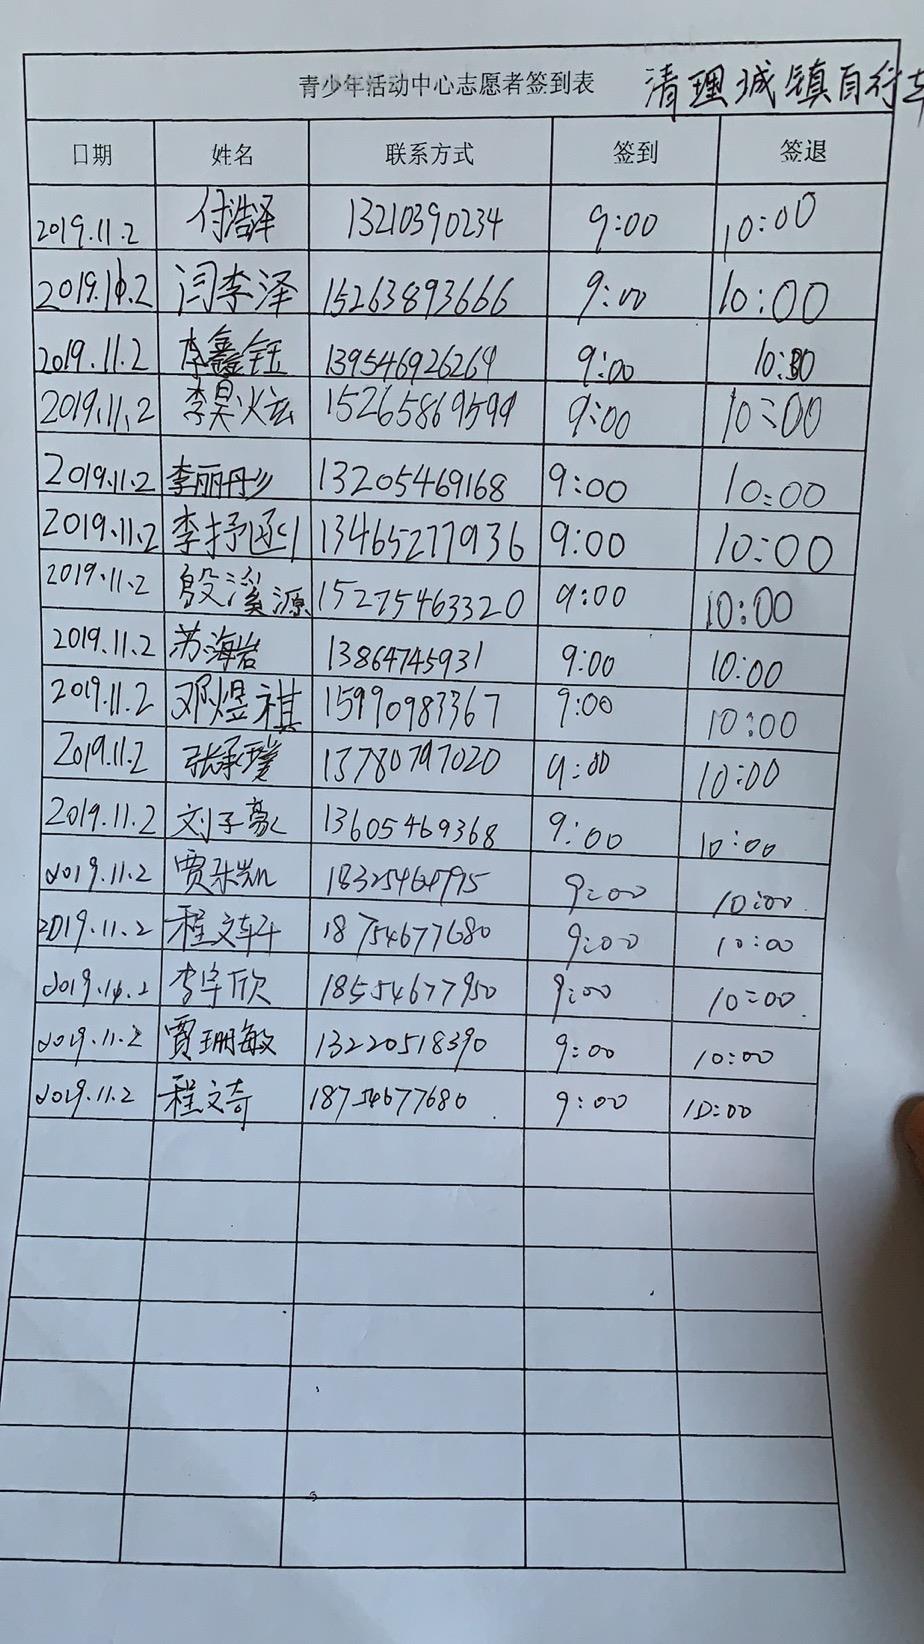 青少年活动中心志愿者签到表 清理城镇自行车
日期 姓名 联系方式 签到 签退
2019.11.2 付浩泽 13210390234 9:00 10:00
2019.11.2 闫李泽 15263893666 9:00 10:00
2019.11.2 李鑫钰 139546926264 9:00 10:30
2019.11.2 李昊炫 15265869599 9:00 10:00
2019.11.2 李丽丹 13205469168 9:00 10:00
2019.11.2 李抒函 13465277936 9:00 10:00
2019.11.2 殷溪源 15275463320 9:00 10:00
2019.11.2 苏海岩 13864745931 9:00 10:00
2019.11.2 邓煜祺 15990983367 9:00 10:00
2019.11.2 张承璞 13780797020 9:00 10:00
2019.11.2 刘子豪 13605469368 9:00 10:00
2019.11.2 9:00 10:00
2019.11.2 程文轩 18754677680 9:00 10:00
2019.11.2 李宇欣 18554677950 9:00 10:00
2019.11.2 贾珊敏 13220518390 9:00 10:00
2019.11.2 程文奇 18754677680 9:00 10:00